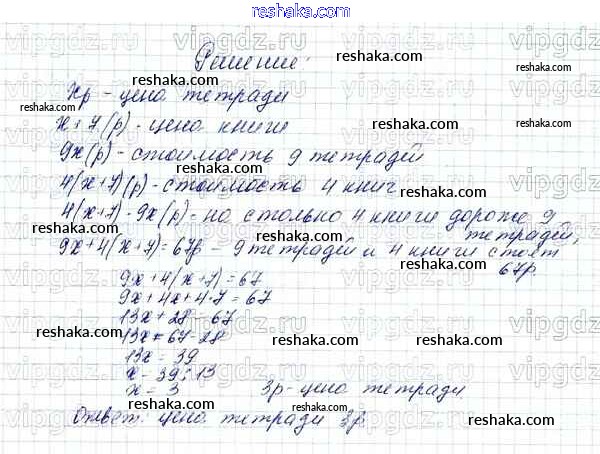 reshaka.com
Решение:
xр - цена тетради
x+7(р) - цена книги
9x(р) - стоимость 9 тетрадей
4(x+7)(р) - стоимость 4 книг
4(x+7)-9x(р) - на столько 4 книги дороже 9
тетрадей,
9x+4(x+7)=67р - 9 тетрадей и 4 книги стоят
67р.
9x+4(x+7)=67
9x+4x+4·7=67
13x+28=67
13x=67-28
13x=39
x=39:13
x=3 3р-цена тетради
Ответ: цена тетради 3р.